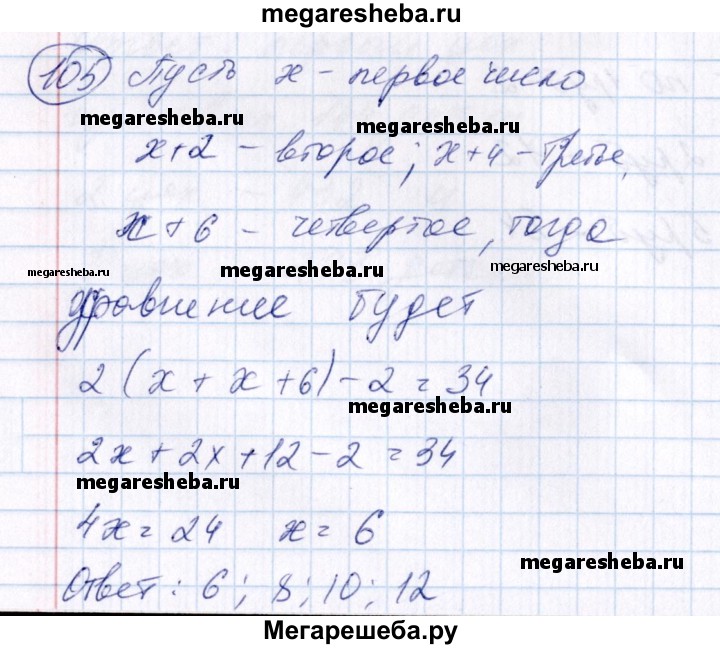 megaresheba.ru
105 Пусть x - первое число
megaresheba.ru
megaresheba.ru
x+2 - второе; x+4 - третье,
x+6 - четвертое, тогда
megaresheba.ru
megaresheba.ru
megaresheba.ru
уравнение будет
2(x+x+6)-2=34
megaresheba.ru
2x+2x+12-2=34
megaresheba.ru
4x=24 x=6
megaresheba.ru
Ответ: 6; 8; 10; 12
Мегарешеба.ру